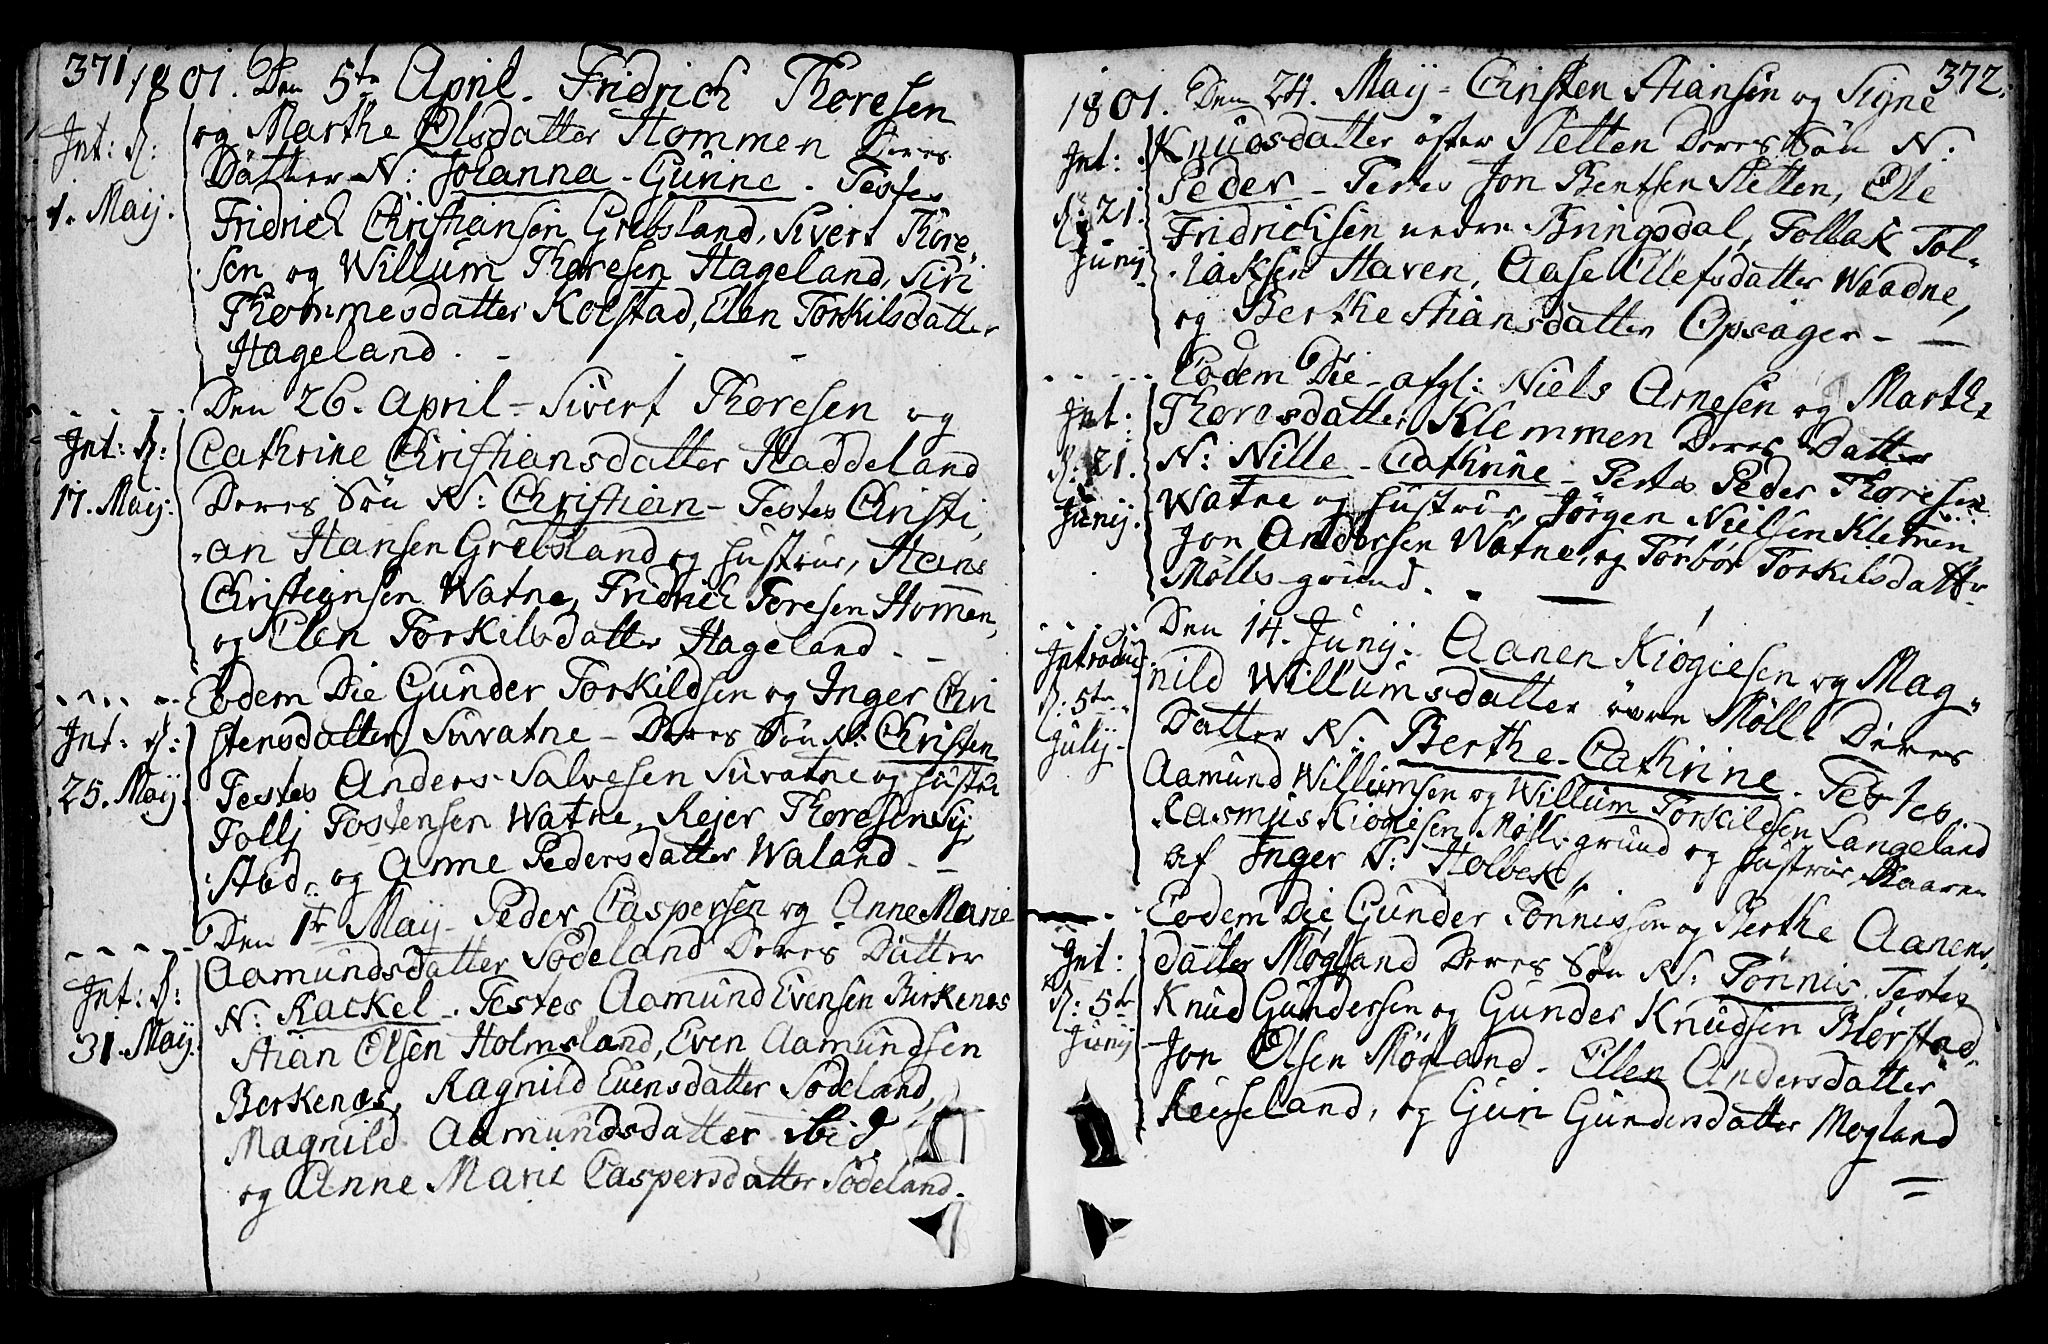 371
1801. Den 5te April. Fridrich Thoresen
Int: d:
1. Maij.
og Marthe Olsdatter Hommen Deres
Datter N: Johanna - Gunne. Testes
Fridrich Christiansen Grebsland, Sivert Thore,
sen og Willum Thoresen Hageland, Siri
Thommesdatter Kolstad, Elen Torkilsdatter
Hageland. - . -
Den 26. April - Sivert Thoresen og
Int: d:
17. Maij.
Cathrine Christiansdatter Haddeland
Deres Søn N: Christian - Testes Christi,
an Hansen Grebsland og hustrue, Hans
Christiansen Watne, Fridrich Toresen Hom̄en,
og Elen Torkilsdatter Hageland. -
Eodem Die Gunder Torkildsen og Inger Chri
Int: d:
25. Maij.
stensdatter Suvatne - Deres Søn N: Christen
Testes Anders Salvesen Suvatne og hustru
Tollj Tostensen Watne, Rejer Thoresen Sy,
stad, og Anne Pedersdatter Waland -
Den 1te Maij - Peder Caspersen og Anne Marie
Int: d:
31. Maij.
Aamundsdatter Sødeland Deres Datter
N: Rackel. Testes Aamund Evensen Birkenes
Stian Olsen Holmsland, Even Aamundsen
Berkenes, Ragnild Evensdatter Sødeland,
Magnild Aamundsdatter ibid.
og Anne Marie Caspersdatter Sødeland.
372.
1801. Den 24. Maij - Christen Stiansen og Signe
Int:
d: 21.
Junij
Knudsdatter øster Sletten Deres Søn N:
Peder - Testes Jon Bentsen Sletten, Ole
Fridrichsen nedre Bringsdal, Tollak Tol-
laksen Haven, Aase Ellefsdatter Waadne,
og Berthe Stiansdatter Opsager - -
Eodem Die - afgl: Niels Arnesen og Marthe
Int:
d: 21.
Junij.
Thoresdatter Klemmen Deres Datter
N: Nille - Cathrine - Testes Peder Thoresen
Watne og hustrue, Jørgen Nielsen Klemen,
Jon Andersen Watne, og Torbør Torkilsdatter
Mølls-grund. - —
Den 14. Junij. Aanen Kiøgiesen og Mag-
Introduc.
d: 5te
Julij -
nild Willumsdatter øvre Møll. Deres
Datter N. Berthe - Cathrine. Testes
Aamund Willumsen og Willum Torkildsen Langeland
Rasmus Kiøgiesen Møllsgrund og hustrue, Baaren
af Inger T: Holbek.
Eodem Die Gunder Tønnissen og Berthe Aanens,
Int:
d: 5te
Junij
datter Møgland Deres Søn N: Tønnis. Testes
Knud Gundersen og Gunder Knudsen Blørstad,
Jon Olsen Møgland - Ellen Andersdatter
Reiseland, og Guri Gundersdatter Møgland